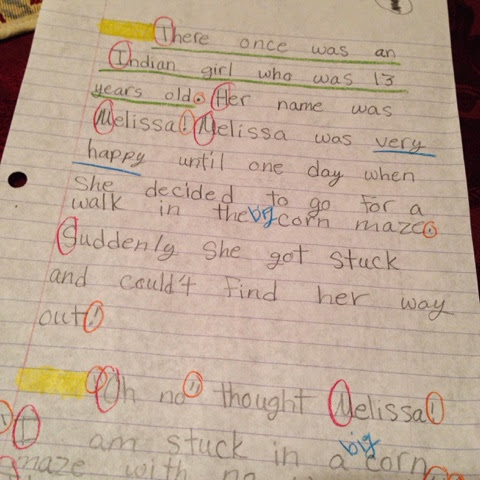 There once was an
Indian girl who was 13
years old. Her name was
Melissa! Melissa was very
happy until one day when
she decided to go for a
walk in the big corn maze.
Suddenly she got stuck
and could't find her way
out!
"Oh no" thought Melissa!
"I am stuck in a big corn
maze with no